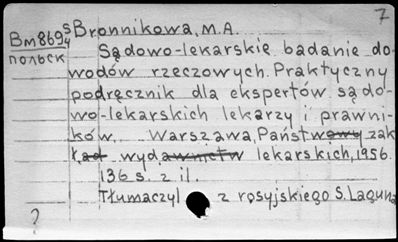 7
Bm869s Bronnikowa, M.A.
4 Sądowo-lekarskie badanie do-
польск wodów rzeczowych. Praktyczny
podręcznik dla ekspertów sądo-
wo-lekarskich lekarzy i prawni-
ków. Warszawa, Państwowy zak
ład wydawnictw lekarskich, 1956.
136 s. z il.
Tłumaczył z rosyjskiego S. Laguna
?